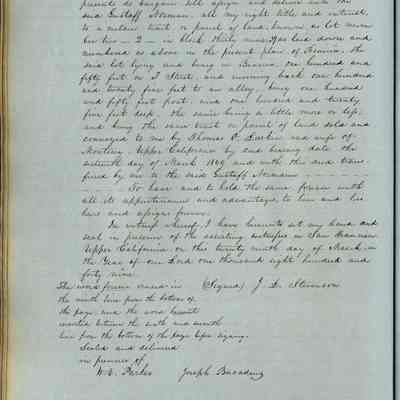 presents do bargain sell assign and deliver unto the
said Gustaff Norman, all my right title and interest,
to a certain tract or parcel of land known as lot number
two - 2 - in block thirty nine 39 as laid down and
numbered as above in the present plan of Benicia, the
said lot lying and being in Benicia, one hundred and
fifty feet on I Street, and running back one hundred
and twenty five feet to an alley, being one hundred
and fifty feet front, and one hundred and twenty
five feet deep, the same being a little more or less,
and being the same tract or parcel of land sold and
conveyed to me by Thomas O. Larkin and wife of
Monterey, Upper California by deed bearing date the
sixteenth day of March 1849 and with this deed trans
ferred by me to the said Gustaff Norman
To have and to hold the same forever with
all its appurtenances and advantages, to him and his
heirs and assigns forever.
In witness whereof, I have hereunto set my hand and
seal in presence of the assisting witnesses in San Francisco
Upper California on this twenty ninth day of March in
the Year of our Lord one thousand eight hundred and
forty nine.
The word forever erased in (Signed) J. D. Stevenson
the ninth line from the bottom of
the page, and the word hereunto
inserted between the sixth and seventh
line from the bottom of the page before signing.
Sealed and delivered
in presence of
W. E. Parker Joseph